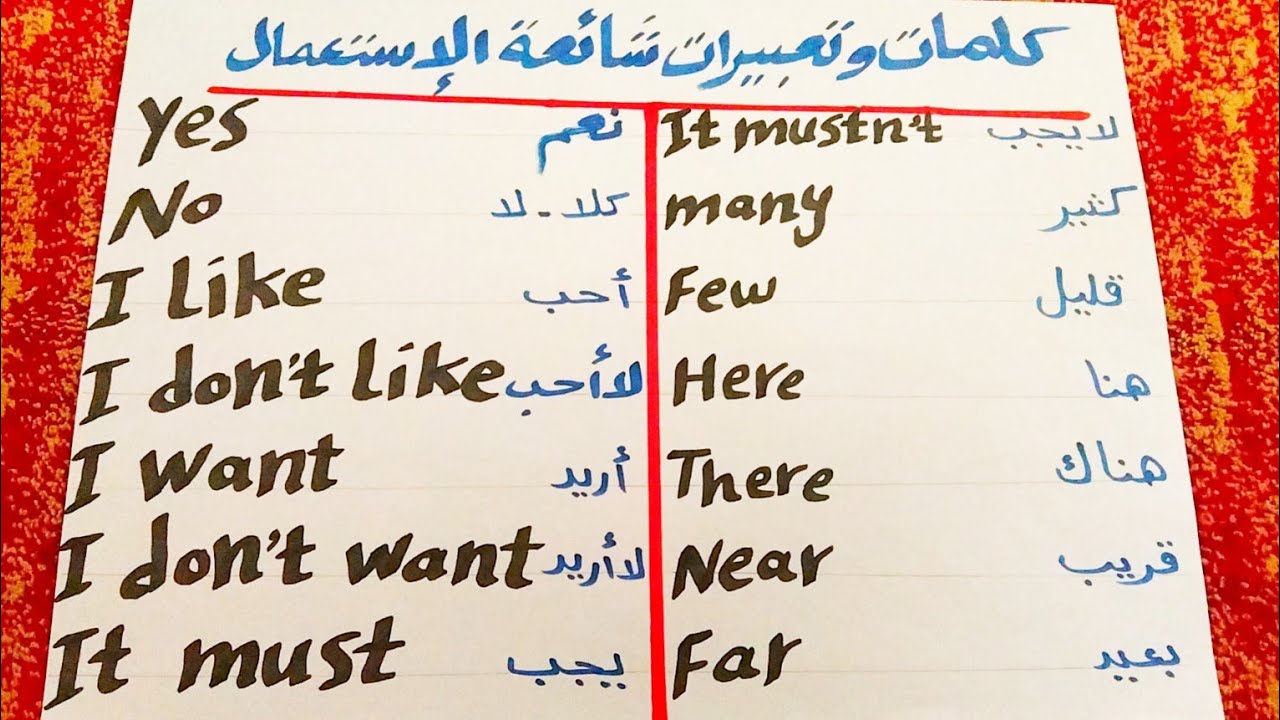 كلمات وتعبيرات شائعة الإستعمال
Yes نعم
No كلا - لا
I like أحب
I don't like لا أحب
I want أريد
I don't want لا أريد
It must يجب
It mustn't لا يجب
many كثير
Few قليل
Here هنا
There هناك
Near قريب
Far بعيد